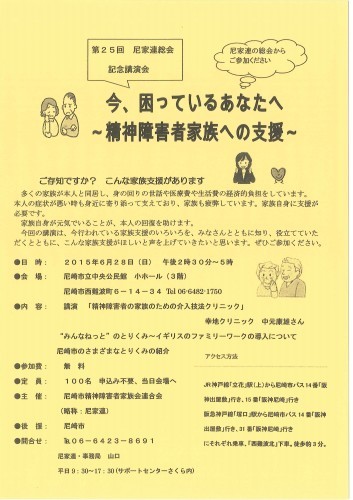 第25回　尼家連総会
記念講演会
尼家連の総会から
ご参加ください
今、困っているあなたへ
～精神障害者家族への支援～
ご存知ですか？　こんな家族支援があります
多くの家族が本人と同居し、身の回りの世話や医療費や生活費の経済的負担をしています。
本人の症状が悪い時も身近に寄り添って支えており、家族も疲弊しています。家族自身に支援が
必要です。
家族自身が元気でいることが、本人の回復を助けます。
今回の講演は、今行われている家族支援のいろいろを、みなさんとともに知り、役立てていた
だくとともに、こんな家族支援がほしいと声を上げていきたいと思います。ぜひご参加ください。
●日　時：　2015年6月28日（日）　午後2時30分～5時
●会　場：　尼崎市立中央公民館　小ホール（3階）
尼崎市西難波町6－14－34　Tel 06-6482-1750
●内　容：　講演　「精神障害者の家族のための介入技法クリニック」
幸地クリニック　中元康雄さん
“みんなねっと”のとりくみ～イギリスのファミリーワークの導入について
尼崎市のさまざまなとりくみの紹介
●参加費：　無　料
●定　員：　100名　申込み不要、当日会場へ
●主　催：　尼崎市精神障害者家族会連合会
（略称：尼家連）
●後　援：　尼崎市
●問合せ：　℡06－6423－8691
尼家連・事務局　山口
平日9：30～17：30（サポートセンターさくら内）
アクセス方法
JR神戸線「立花」駅（上）から尼崎市バス14番「阪
神出屋敷」行き、15番「阪神尼崎」行き
阪急神戸線「塚口」駅から尼崎市バス14番「阪神
出屋敷」行き、31番「阪神尼崎」行き
にそれぞれ乗車、「西難波北」下車。徒歩約3分。